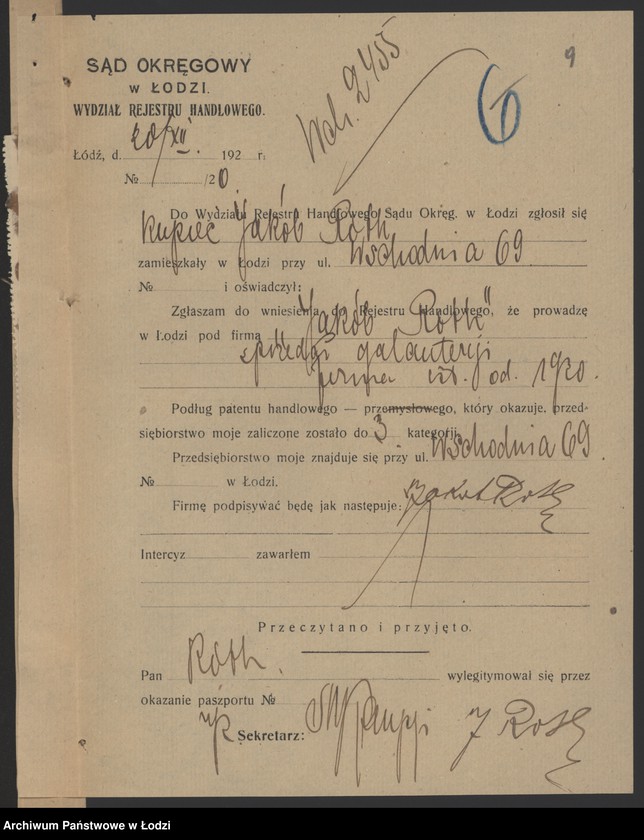 9
Wch. 2455
6
SĄD OKRĘGOWY
w ŁODZI.
WYDZIAŁ REJESTRU HANDLOWEGO.
Łódź, d. 20/XII. 192 r.
№ /20
Do Wydziału Rejestru Handlowego Sądu Okręg. w Łodzi zgłosił się
kupiec Jakób Roth
zamieszkały w Łodzi przy ul. Wschodnia 69
№ i oświadczył:
Zgłaszam do wniesienia do Rejestru Handlowego, że prowadzę
w Łodzi pod firmą „Jakób Roth"
galanterji
firma ist. od. 1920.
Podług patentu handlowego — przemysłowego, który okazuję, przed-
siębiorstwo moje zaliczone zostało do 3 kategorji.
Przedsiębiorstwo moje znajduje się przy ul. Wschodnia 69.
№ w Łodzi.
Firmę podpisywać będę jak następuje: Jakob Roth
Intercyz zawarłem
Przeczytano i przyjęto.
Pan Roth. wylegitymował się przez
okazanie paszportu №
Sekretarz: J Roth
Archiwum Państwowe w Łodzi